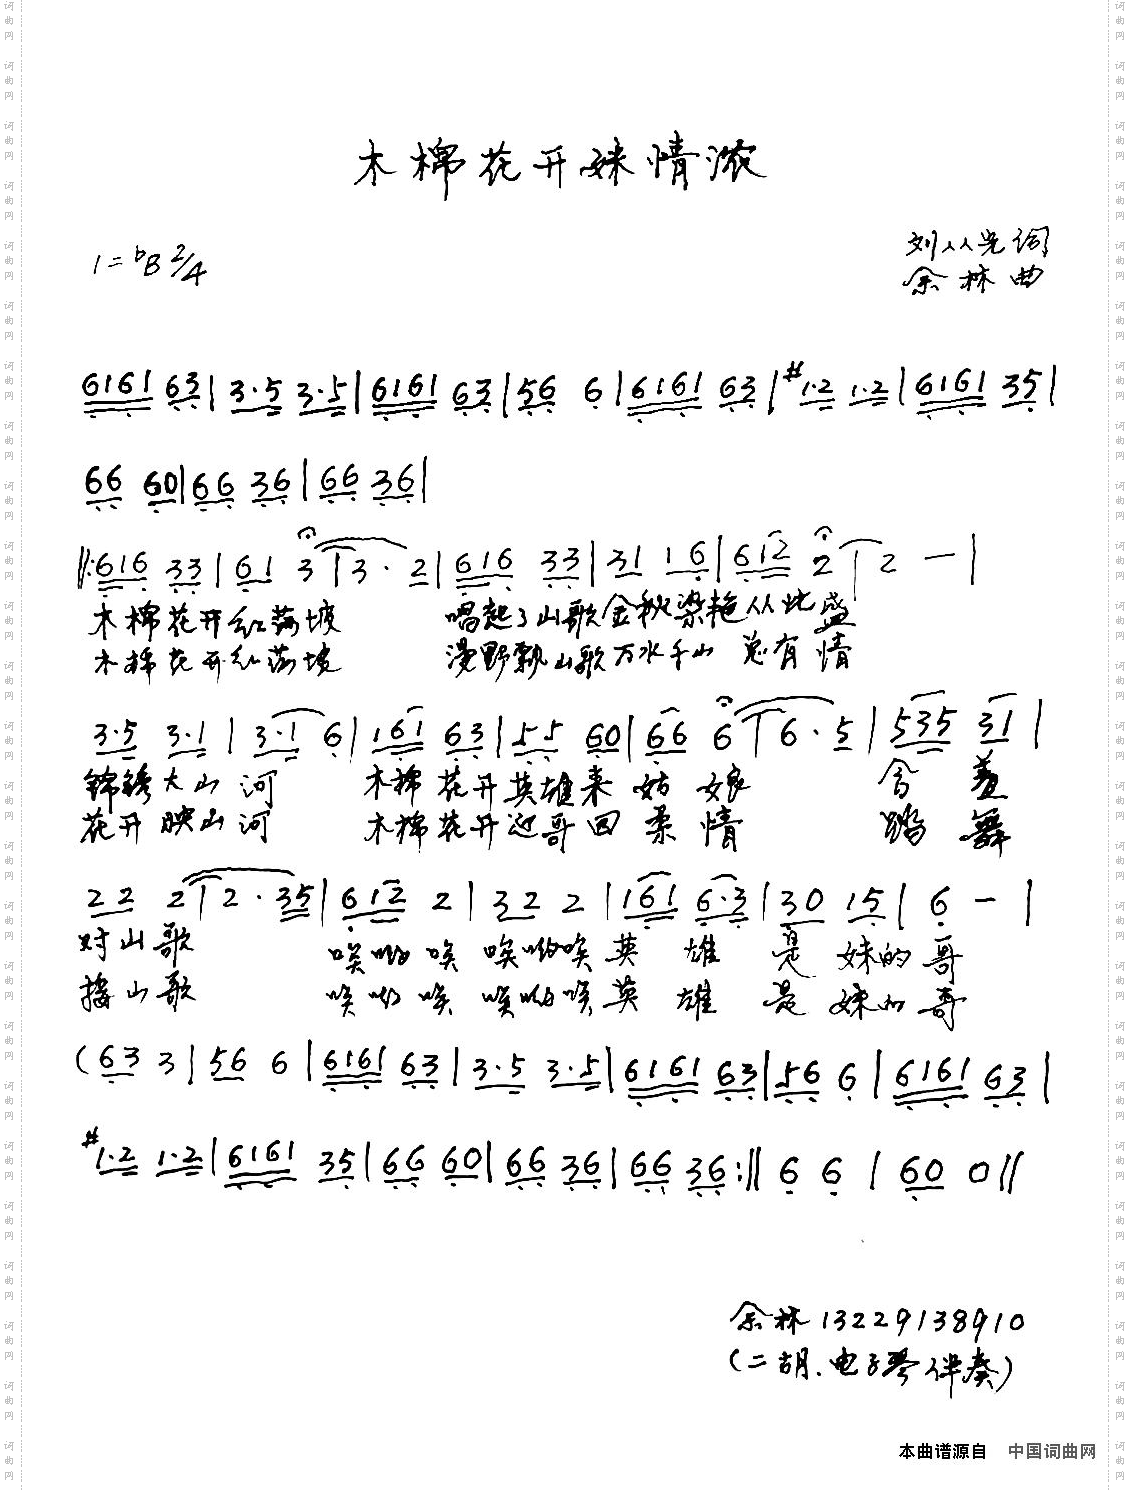 木棉花开妹情浓
1=♭B 2/4
刘从光词
余林曲
6161 63 | 3·5 3·5 | 6161 63 | 56 6 | 6161 63 | #1·2 1·2 | 6161 35 |
66 60 | 66 36 | 66 36 |
‖: 616 33 | 61 3 | 3· 2 | 616 33 | 31 16 | 612 2 | 2 — |
木棉花开红满坡 唱起了山歌金秋染艳从此盛
木棉花开红满坡 漫野飘山歌万水千山总有情
3·5 3·1 | 3·1 6 | 161 63 | 55 60 | 66 6 | 6·5 | 535 31 |
锦绣大山河 木棉花开英雄来姑娘 含羞
花开映山河 木棉花开迎哥回柔情 踏舞
22 2 | 2·35 | 612 2 | 322 2 | 161 6·3 | 30 15 | 6 — |
对山歌 唉呦唉 唉呦唉英雄是妹的哥
摇山歌 唉呦唉 唉呦唉英雄是妹的哥
(63 3 | 56 6 | 6161 63 | 3·5 3·5 | 6161 63 | 56 6 | 6161 63 |
#1·2 1·2 | 6161 35 | 66 60 | 66 36 | 66 36 :‖ 6 6 | 60 0 ‖
余林 13229138910
(二胡.电子琴伴奏)
本曲谱源自 中国词曲网
词曲网